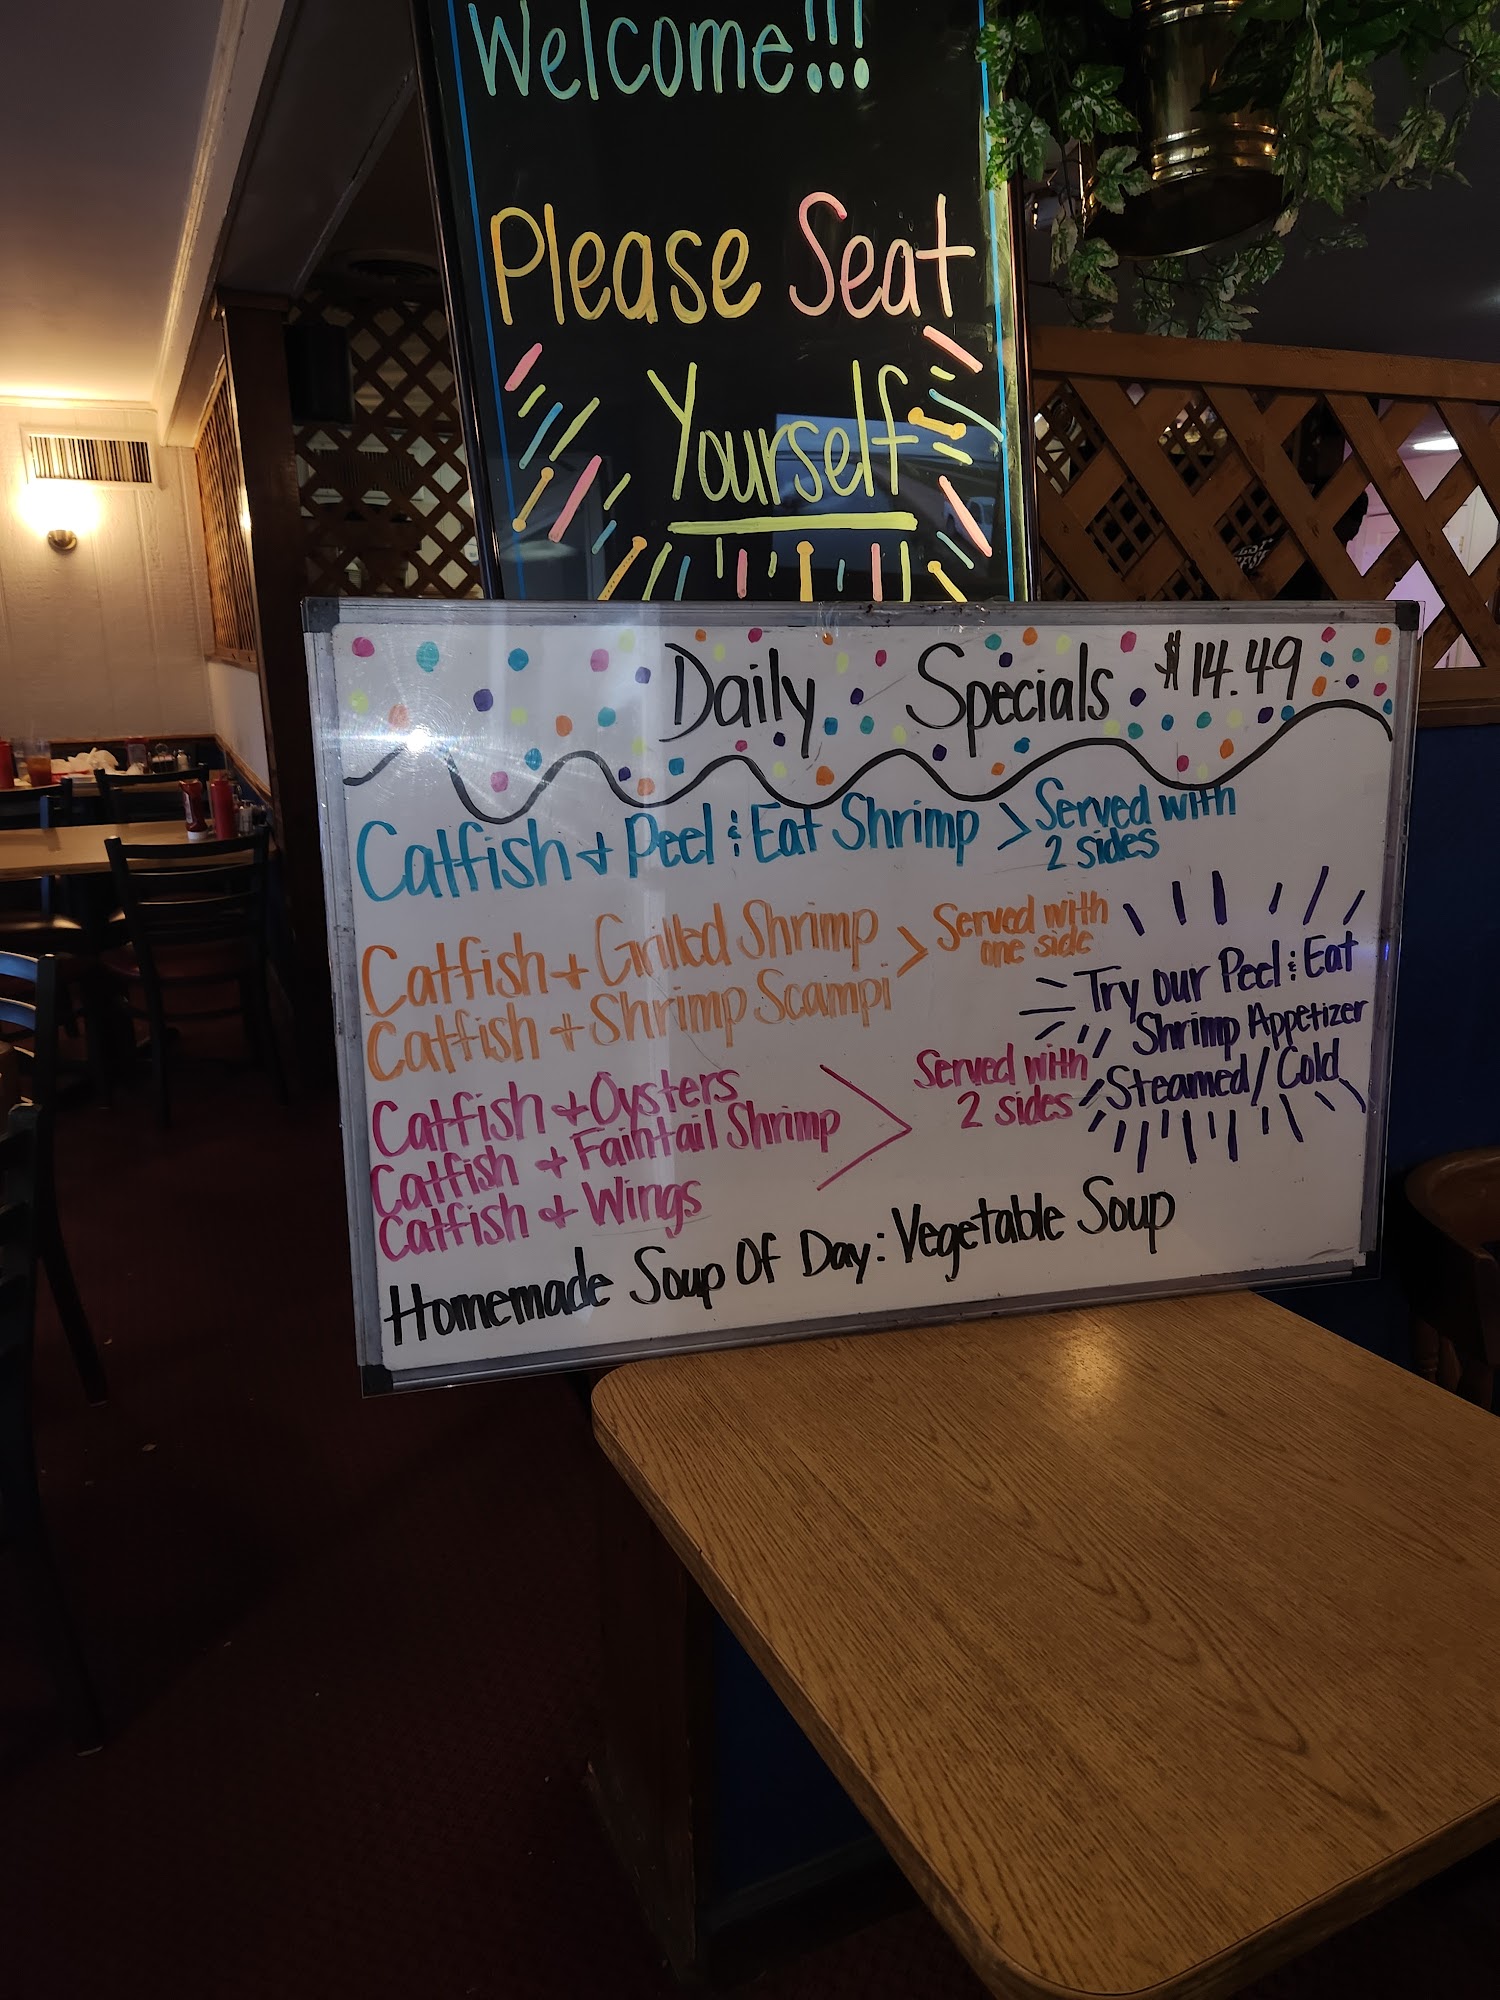 Welcome!!!
Please Seat
Yourself
Daily Specials $14.49
Catfish + Peel & Eat Shrimp > Served with
2 sides
Catfish + Grilled Shrimp
Catfish + Shrimp Scampi
> Served with
one side
Catfish + Oysters
Catfish + Faintail Shrimp
Catfish + Wings
Served with
2 sides
Try our Peel & Eat
Shrimp Appetizer
Steamed/Cold
Homemade Soup Of Day: Vegetable Soup